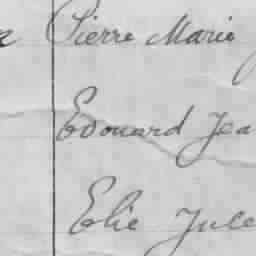 Pierre Marie
Edouard Jea
Elie Jule